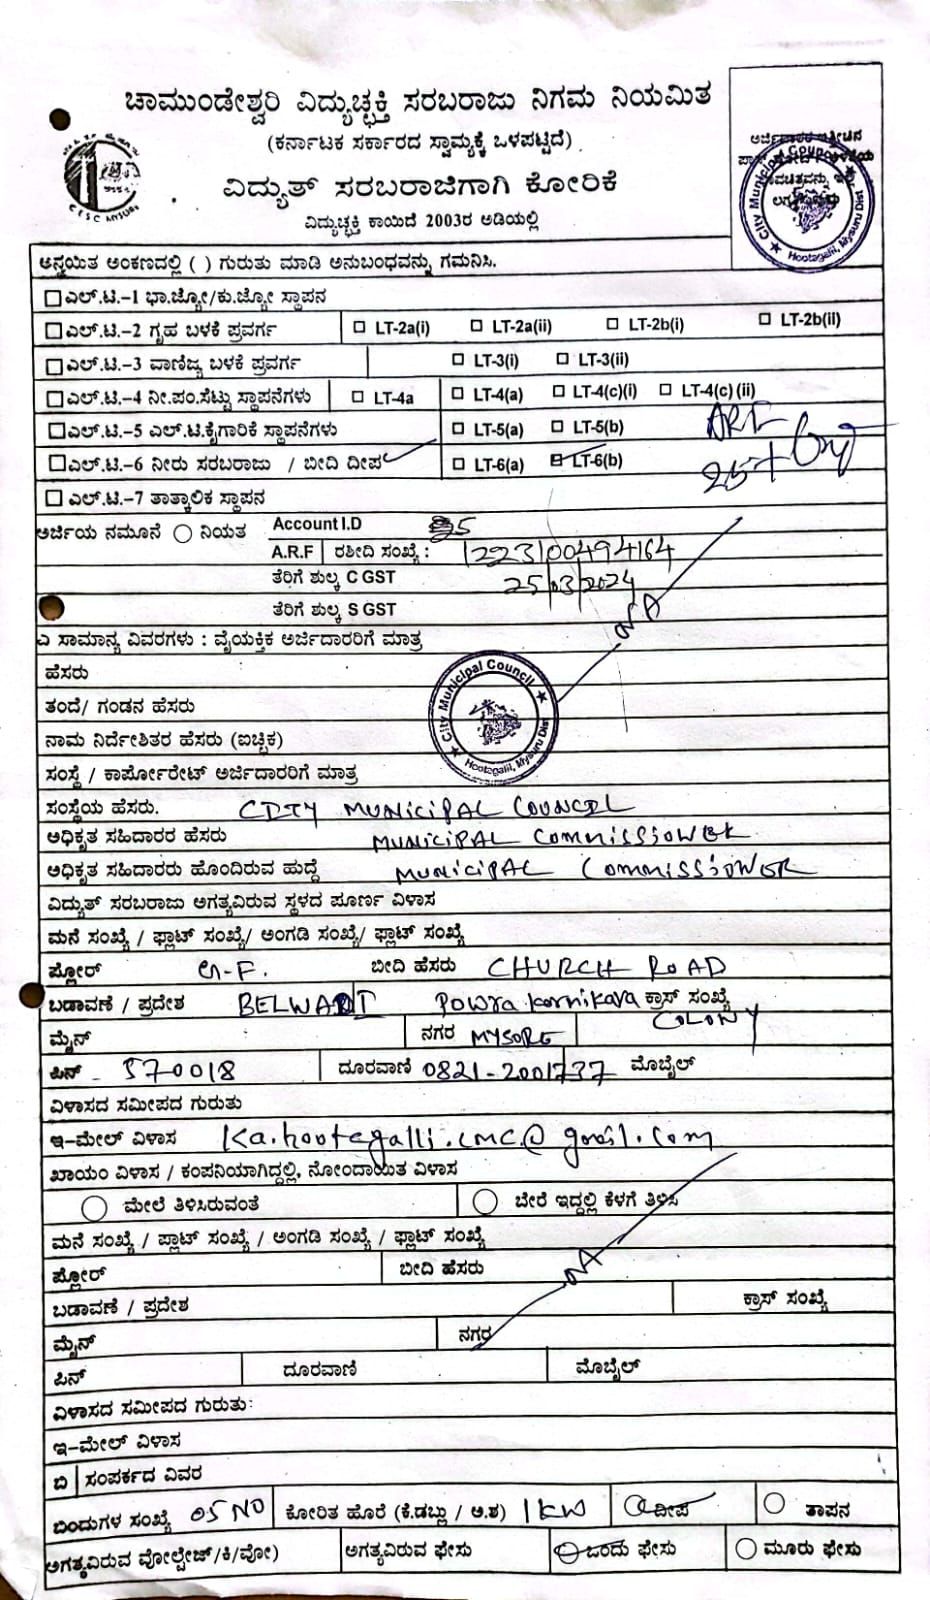 ಚಾಮುಂಡೇಶ್ವರಿ ವಿದ್ಯುಚ್ಛಕ್ತಿ ಸರಬರಾಜು ನಿಗಮ ನಿಯಮಿತ
(ಕರ್ನಾಟಕ ಸರ್ಕಾರದ ಸ್ವಾಮ್ಯಕ್ಕೆ ಒಳಪಟ್ಟಿದೆ)
ವಿದ್ಯುತ್ ಸರಬರಾಜಿಗಾಗಿ ಕೋರಿಕೆ
ವಿದ್ಯುಚ್ಛಕ್ತಿ ಕಾಯಿದೆ 2003ರ ಅಡಿಯಲ್ಲಿ
CESC MYSORE
City Municipal Council
Hootagalli, Mysuru Dist
ಅನ್ವಯಿತ ಅಂಕಣದಲ್ಲಿ ( ) ಗುರುತು ಮಾಡಿ ಅನುಬಂಧವನ್ನು ಗಮನಿಸಿ.
ಎಲ್.ಟಿ.-1 ಭಾ.ಜ್ಯೋ/ಕು.ಜ್ಯೋ ಸ್ಥಾಪನ
ಎಲ್.ಟಿ.-2 ಗೃಹ ಬಳಕೆ ಪ್ರವರ್ಗ LT-2a(i) LT-2a(ii) LT-2b(i) LT-2b(ii)
ಎಲ್.ಟಿ.-3 ವಾಣಿಜ್ಯ ಬಳಕೆ ಪ್ರವರ್ಗ LT-3(i) LT-3(ii)
ಎಲ್.ಟಿ.-4 ನೀ.ಪಂ.ಸೆಟ್ಟು ಸ್ಥಾಪನೆಗಳು LT-4a LT-4(a) LT-4(c)(i) LT-4(c)(ii)
ಎಲ್.ಟಿ.-5 ಎಲ್.ಟಿ.ಕೈಗಾರಿಕೆ ಸ್ಥಾಪನೆಗಳು LT-5(a) LT-5(b)
ಎಲ್.ಟಿ.-6 ನೀರು ಸರಬರಾಜು / ಬೀದಿ ದೀಪ LT-6(a) LT-6(b)
ಎಲ್.ಟಿ.-7 ತಾತ್ಕಾಲಿಕ ಸ್ಥಾಪನ
ಅರ್ಜಿಯ ನಮೂನೆ ನಿಯತ Account I.D
A.R.F ರಶೀದಿ ಸಂಖ್ಯೆ : 1223100494164
ತೆರಿಗೆ ಶುಲ್ಕ C GST 25/03/2024
ತೆರಿಗೆ ಶುಲ್ಕ S GST
NA
ಎ ಸಾಮಾನ್ಯ ವಿವರಗಳು : ವೈಯಕ್ತಿಕ ಅರ್ಜಿದಾರರಿಗೆ ಮಾತ್ರ
ಹೆಸರು
ತಂದೆ/ ಗಂಡನ ಹೆಸರು
ನಾಮ ನಿರ್ದೇಶಿತರ ಹೆಸರು (ಐಚ್ಛಿಕ)
City Municipal Council
Hootagalli, Mysuru Dist
ಸಂಸ್ಥೆ / ಕಾರ್ಪೋರೇಟ್ ಅರ್ಜಿದಾರರಿಗೆ ಮಾತ್ರ
ಸಂಸ್ಥೆಯ ಹೆಸರು. CITY MUNICIPAL COUNCIL
ಅಧಿಕೃತ ಸಹಿದಾರರ ಹೆಸರು MUNICIPAL COMMISSIONER
ಅಧಿಕೃತ ಸಹಿದಾರರು ಹೊಂದಿರುವ ಹುದ್ದೆ MUNICIPAL COMMISSIONER
ವಿದ್ಯುತ್ ಸರಬರಾಜು ಅಗತ್ಯವಿರುವ ಸ್ಥಳದ ಪೂರ್ಣ ವಿಳಾಸ
ಮನೆ ಸಂಖ್ಯೆ / ಫ್ಲಾಟ್ ಸಂಖ್ಯೆ/ ಅಂಗಡಿ ಸಂಖ್ಯೆ/ ಫ್ಲಾಟ್ ಸಂಖ್ಯೆ
ಫ್ಲೋರ್ G-F. ಬೀದಿ ಹೆಸರು CHURCH ROAD
ಬಡಾವಣೆ / ಪ್ರದೇಶ Powra Karmikara ಕ್ರಾಸ್ ಸಂಖ್ಯೆ
ಮೈನ್ ನಗರ MYSORE COLONY
ಪಿನ್ - 570018 ದೂರವಾಣಿ 0821-2001737 ಮೊಬೈಲ್
ವಿಳಾಸದ ಸಮೀಪದ ಗುರುತು
ಇ-ಮೇಲ್ ವಿಳಾಸ ka.hootagalli.cmc@gmail.com
ಖಾಯಂ ವಿಳಾಸ / ಕಂಪನಿಯಾಗಿದ್ದಲ್ಲಿ, ನೋಂದಾಯಿತ ವಿಳಾಸ
ಮೇಲೆ ತಿಳಿಸಿರುವಂತೆ ಬೇರೆ ಇದ್ದಲ್ಲಿ ಕೆಳಗೆ ತಿಳಿಸಿ
ಮನೆ ಸಂಖ್ಯೆ / ಪ್ಲಾಟ್ ಸಂಖ್ಯೆ / ಅಂಗಡಿ ಸಂಖ್ಯೆ / ಫ್ಲಾಟ್ ಸಂಖ್ಯೆ
ಫ್ಲೋರ್ ಬೀದಿ ಹೆಸರು NA
ಬಡಾವಣೆ / ಪ್ರದೇಶ ಕ್ರಾಸ್ ಸಂಖ್ಯೆ
ಮೈನ್ ನಗರ
ಪಿನ್ ದೂರವಾಣಿ ಮೊಬೈಲ್
ವಿಳಾಸದ ಸಮೀಪದ ಗುರುತು:
ಇ-ಮೇಲ್ ವಿಳಾಸ
ಬಿ ಸಂಪರ್ಕದ ವಿವರ
ಬಿಂದುಗಳ ಸಂಖ್ಯೆ 05 NO ಕೋರಿತ ಹೊರೆ (ಕೆ.ಡಬ್ಲು / ಅ.ಶ) 1 KW ದೀಪ ತಾಪನ
ಅಗತ್ಯವಿರುವ ವೋಲ್ಟೇಜ್/ಕಿ/ವೋ) ಅಗತ್ಯವಿರುವ ಫೇಸು ಒಂದು ಫೇಸು ಮೂರು ಫೇಸು